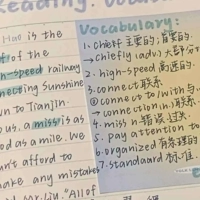 Reading: Vocab
Hao is the
of the
h-speed railway
necting Sunshine
wn to Tianjin.
ous. a miss is as
ood as a mile. We
n't afford to
ake any mistakes
"All of
Vocabulary:
1. chief 主要的; 首要的.
→chiefly (adv.) 大部分
2. high-speed 高速的.
3. connect 联系
①connect to/with 与
→connection (n.) 联系.
4. miss n. 错过
5. pay attention to
6. organized 有条理的
7. standard 标准